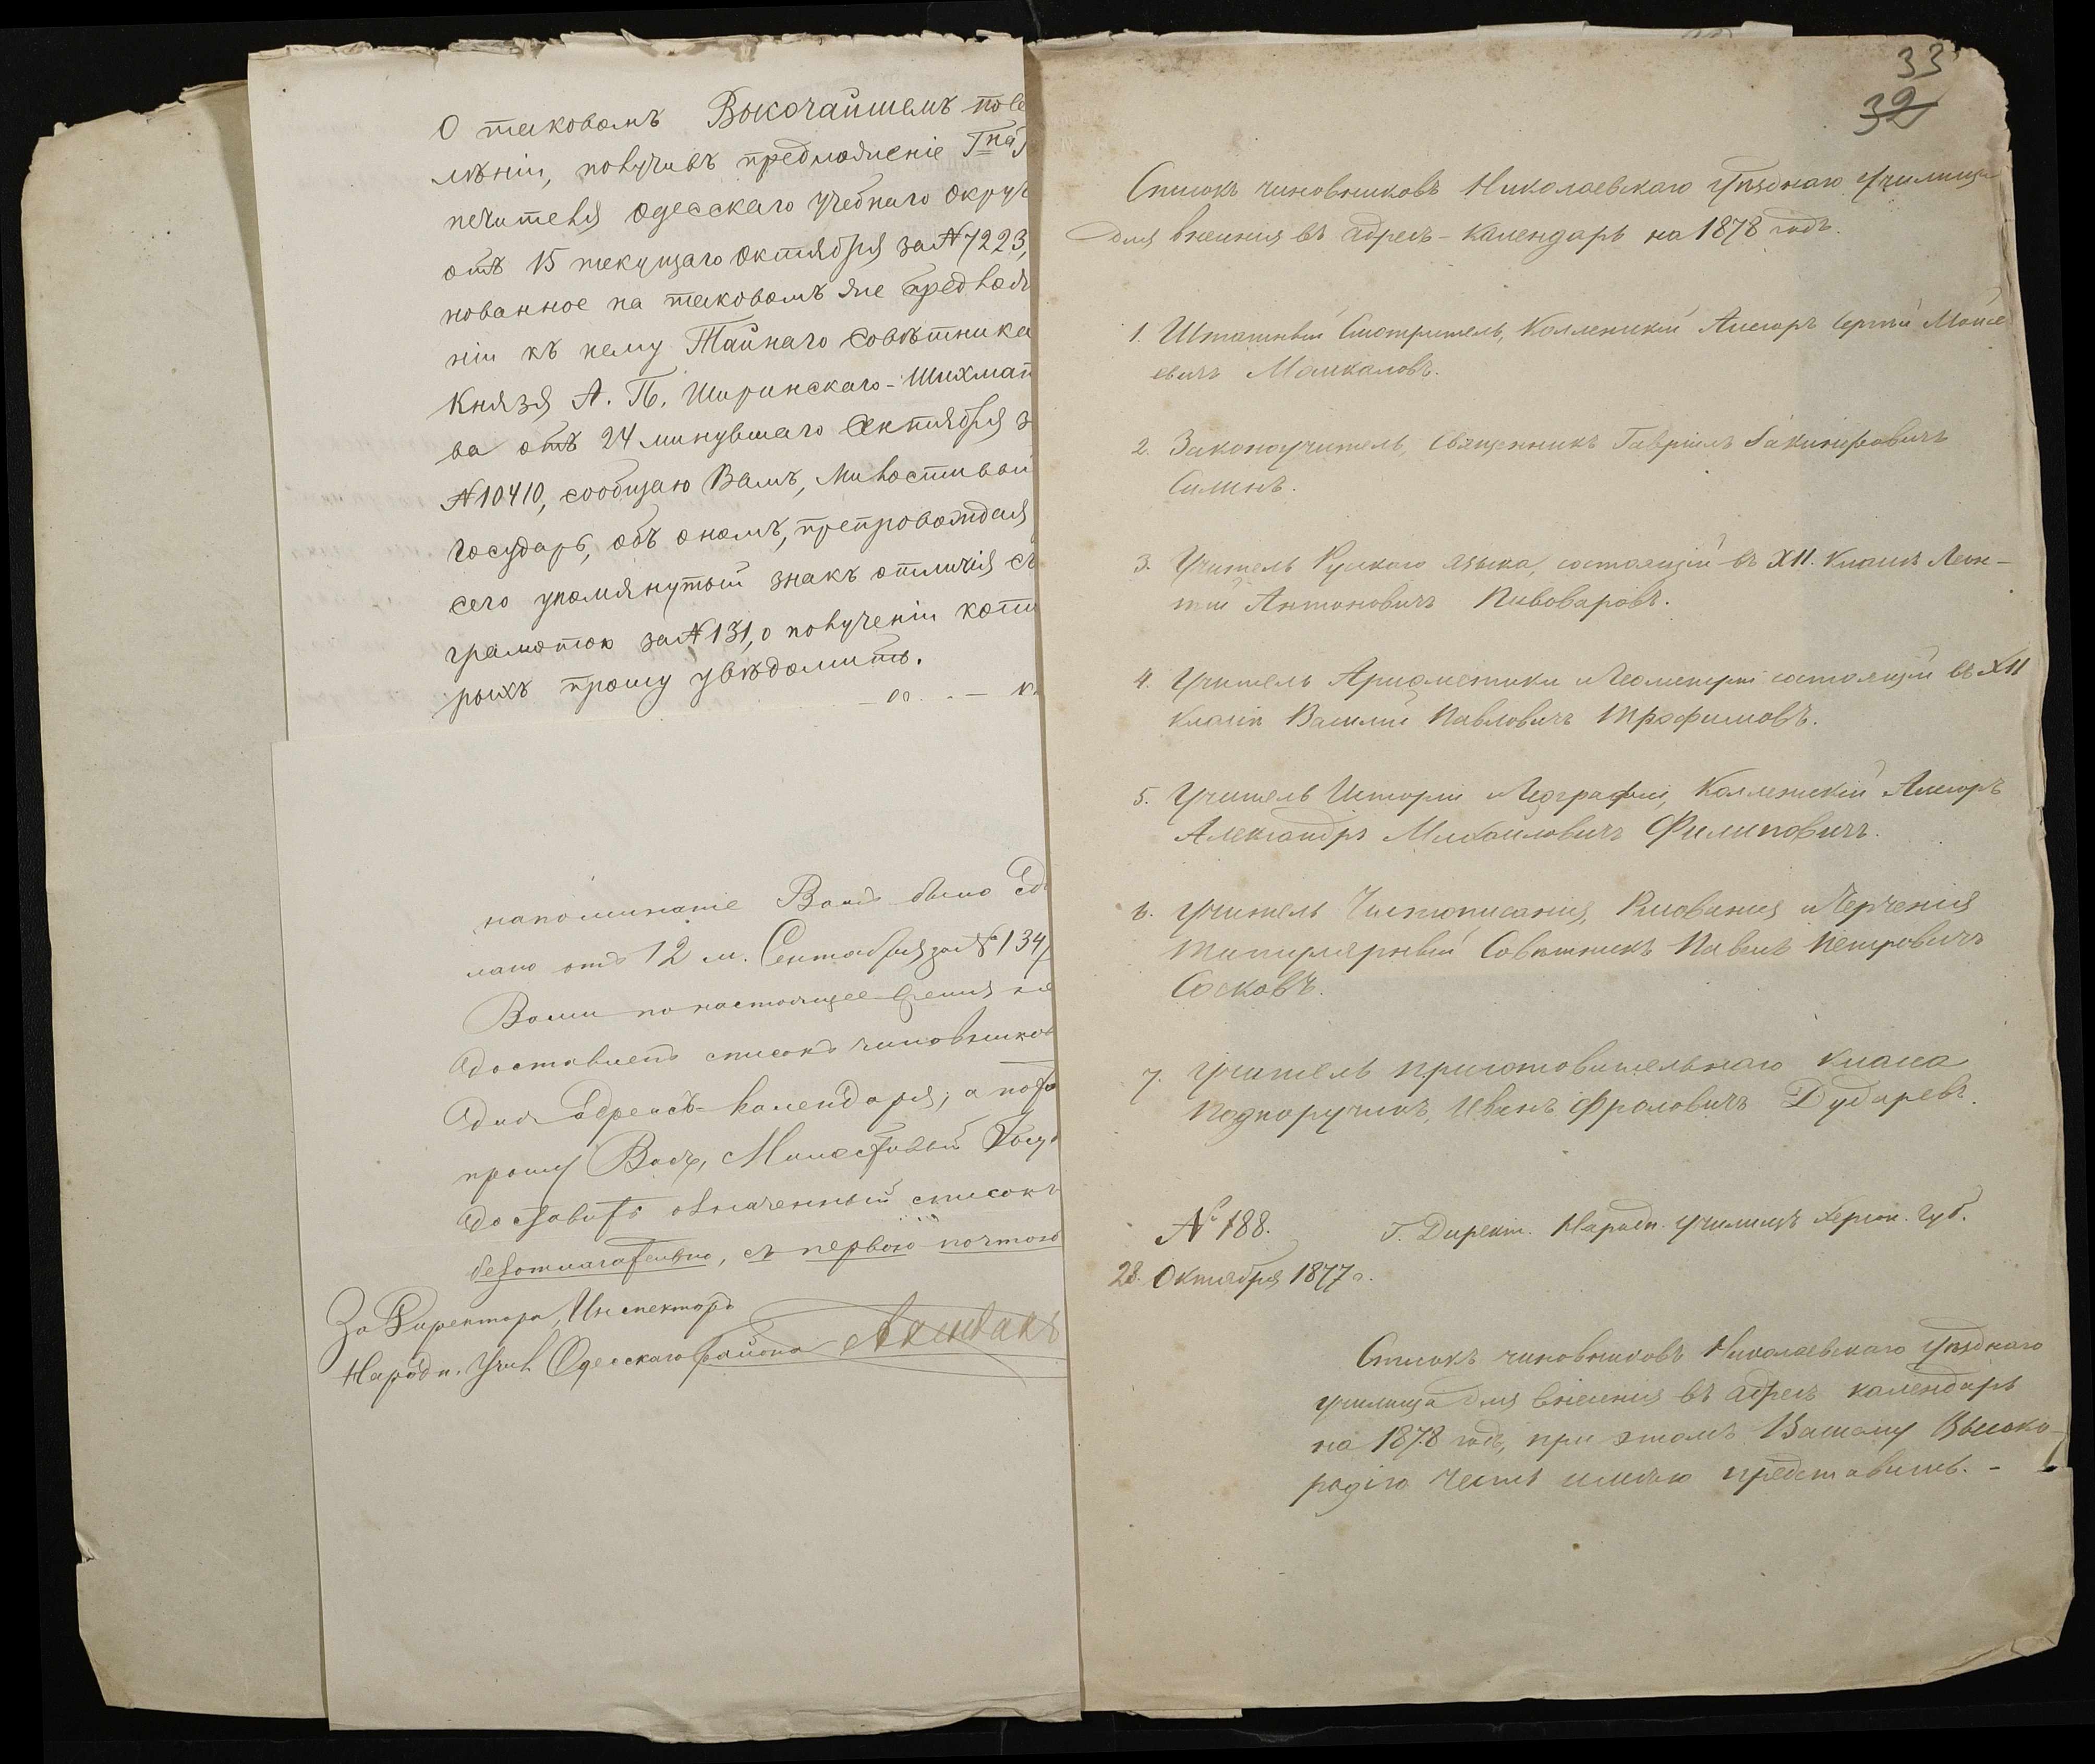 О таковомъ Высочайшемъ пове
лѣніи, получивъ предложеніе Гна
печителя Одесскаго Учебнаго Округ
отъ 15 текущаго Октября за № 7223,
нованное на таковомъ же предлож
ніи къ нему Тайнаго Совѣтника
Князя А. П. Ширинскаго-Шихмат
ва отъ 24 минувшаго Сентября з
№ 10410, сообщаю Вамъ, Милостивый
Государь, объ ономъ, препровождая
сего упомянутый знакъ отличія съ
грамотою за № 131, о полученіи кото
рыхъ прошу увѣдомить.
напоминаніе Вамъ было сдѣ
лано отъ 12 м. Сентября за № 134
Вами по настоящее время не
доставленъ списокъ чиновников
для Адресъ-календаря; а пото
прошу Васъ, Милостивый Госуд
доставить означенный списокъ
безотлагательно, съ первою почтою
За Директора, Инспекторъ
Народн. Учил. Одесскаго района
33
32
Списокъ чиновниковъ Николаевскаго Уѣзднаго Училища
для внесенія въ адресъ-календарь на 1878 годъ.
1. Штатный Смотритель, Коллежскій Ассесоръ Сергѣй Моисе
евичъ Машкаловъ.
2. Законоучитель, Священникъ Гавріилъ Іакинфовичъ
Силинъ.
3. Учитель Русскаго языка, состоящій въ XII. Классѣ Леон-
тій Антоновичъ Пивоваровъ.
4. Учитель Ариѳметики и Геометріи состоящій въ XII
Классѣ Василій Павловичъ Трофимовъ.
5. Учитель Исторіи и Географіи, Коллежскій Ассесоръ
Александръ Михайловичъ Филиповичъ.
6. Учитель Чистописанія, Рисованія и Черченія
Титулярный Совѣтникъ Павелъ Петровичъ
Сосковъ.
7. Учитель приготовительнаго класса
Подпоручикъ, Иванъ Фроловичъ Дударевъ.
№ 188. Г. Директ. Народн. училищъ Херсон. Губ.
28. Октября 1877 г.
Списокъ чиновниковъ Николаевскаго Уѣзднаго
училища для внесенія въ адресъ календарь
на 1878 годъ, при этомъ Вашему Высоко-
родію честь имѣю представить. -